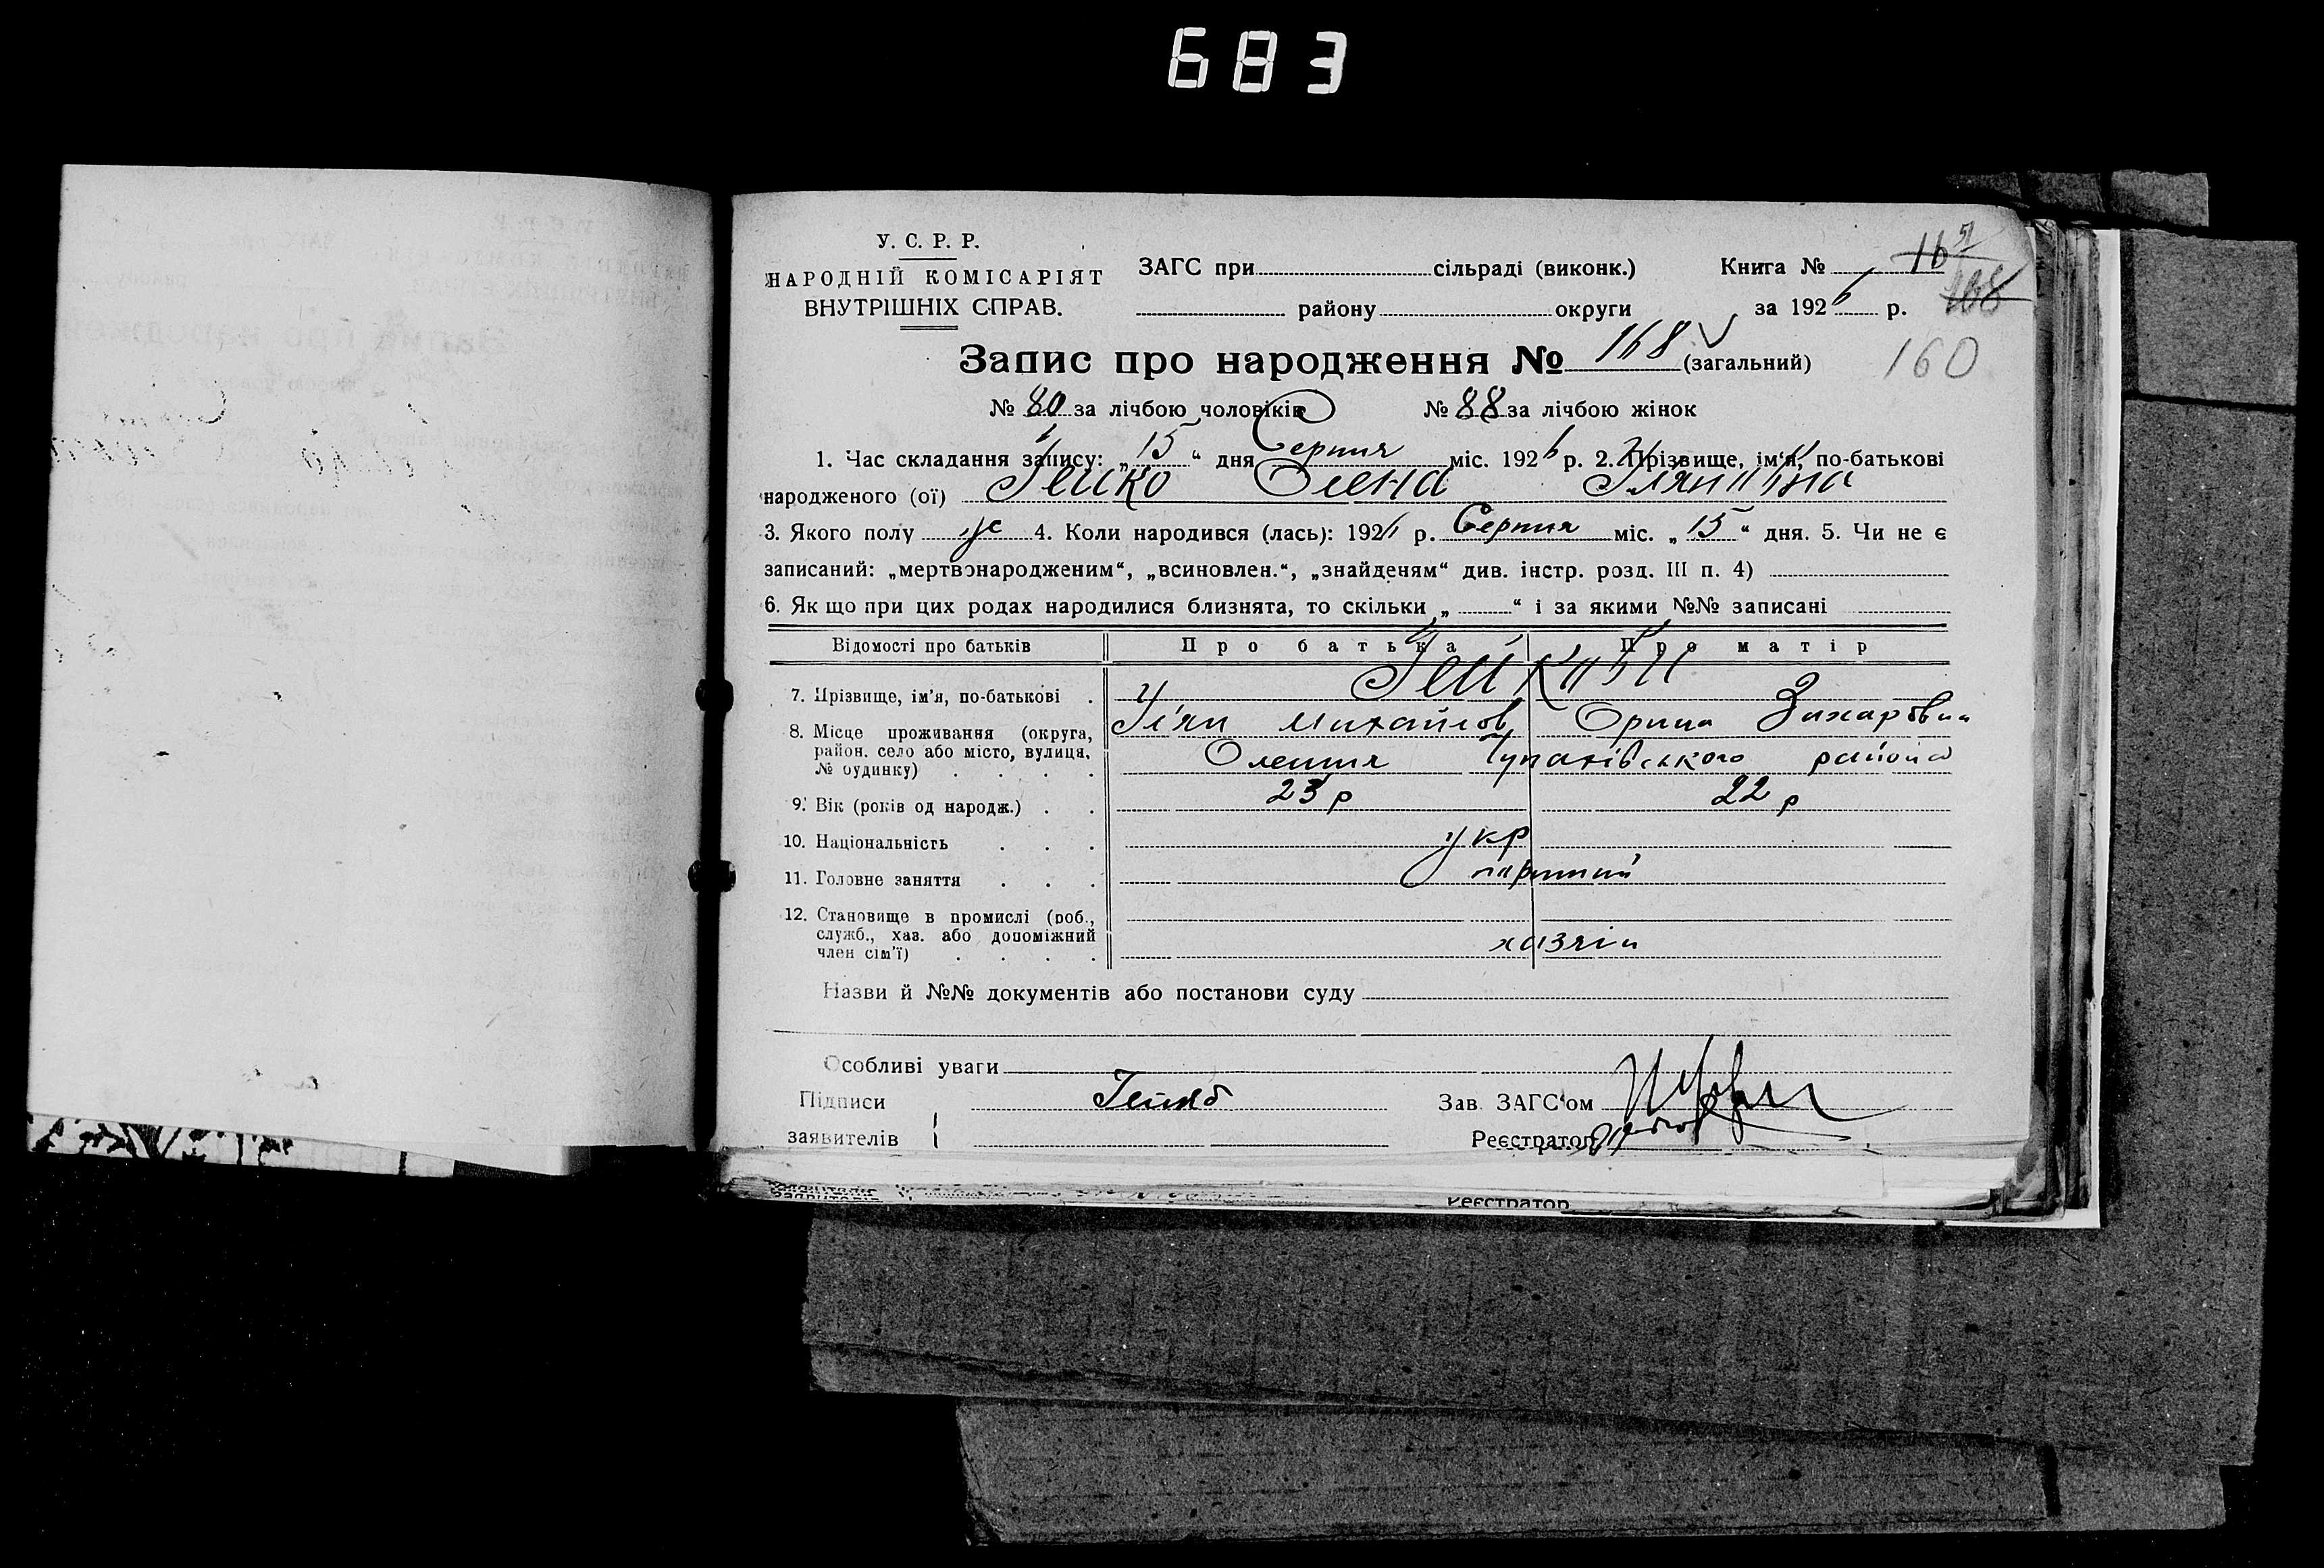 683
У. С. Р. Р.
НАРОДНІЙ КОМІСАРІЯТ
ВНУТРІШНІХ СПРАВ.
ЗАГС при сільраді (виконк.)
Книга №
району округи за 1926 р.
168
160
Запис про народження № 168 (загальний)
№ 80 за лічбою чоловіків № 88 за лічбою жінок
1. Час складання запису: „15“ дня Серпня міс. 1926 р. 2. Прізвище, ім'я, по-батькові
народженого (ої) Гейко Олена
3. Якого полу ж 4. Коли народився (лась): 1926 р. Серпня міс. „15“ дня. 5. Чи не є
записаний: „мертвонародженим“, „всиновлен.“, „знайденям“ див. інстр. розд. III п. 4)
6. Як що при цих родах народилися близнята, то скільки „ “ і за якими №№ записані
Відомості про батьків Про батька Про матір
7. Прізвище, ім'я, по-батькові .
Михайлов Орина Захаровна
8. Місце проживання (округа,
район, село або місто, вулиця,
№ будинку) . . . .
району
9. Вік (років од народж.) . . 23 р 22 р
10. Національність . . . укр
11. Головне заняття . . .
12. Становище в промислі (роб.,
служб., хаз. або допоміжний
член сім'ї) . . . .
хазяін
Назви й №№ документів або постанови суду
Особливі уваги
Підписи
заявителів
Зав. ЗАГС'ом
Реєстратор
Реєстратор